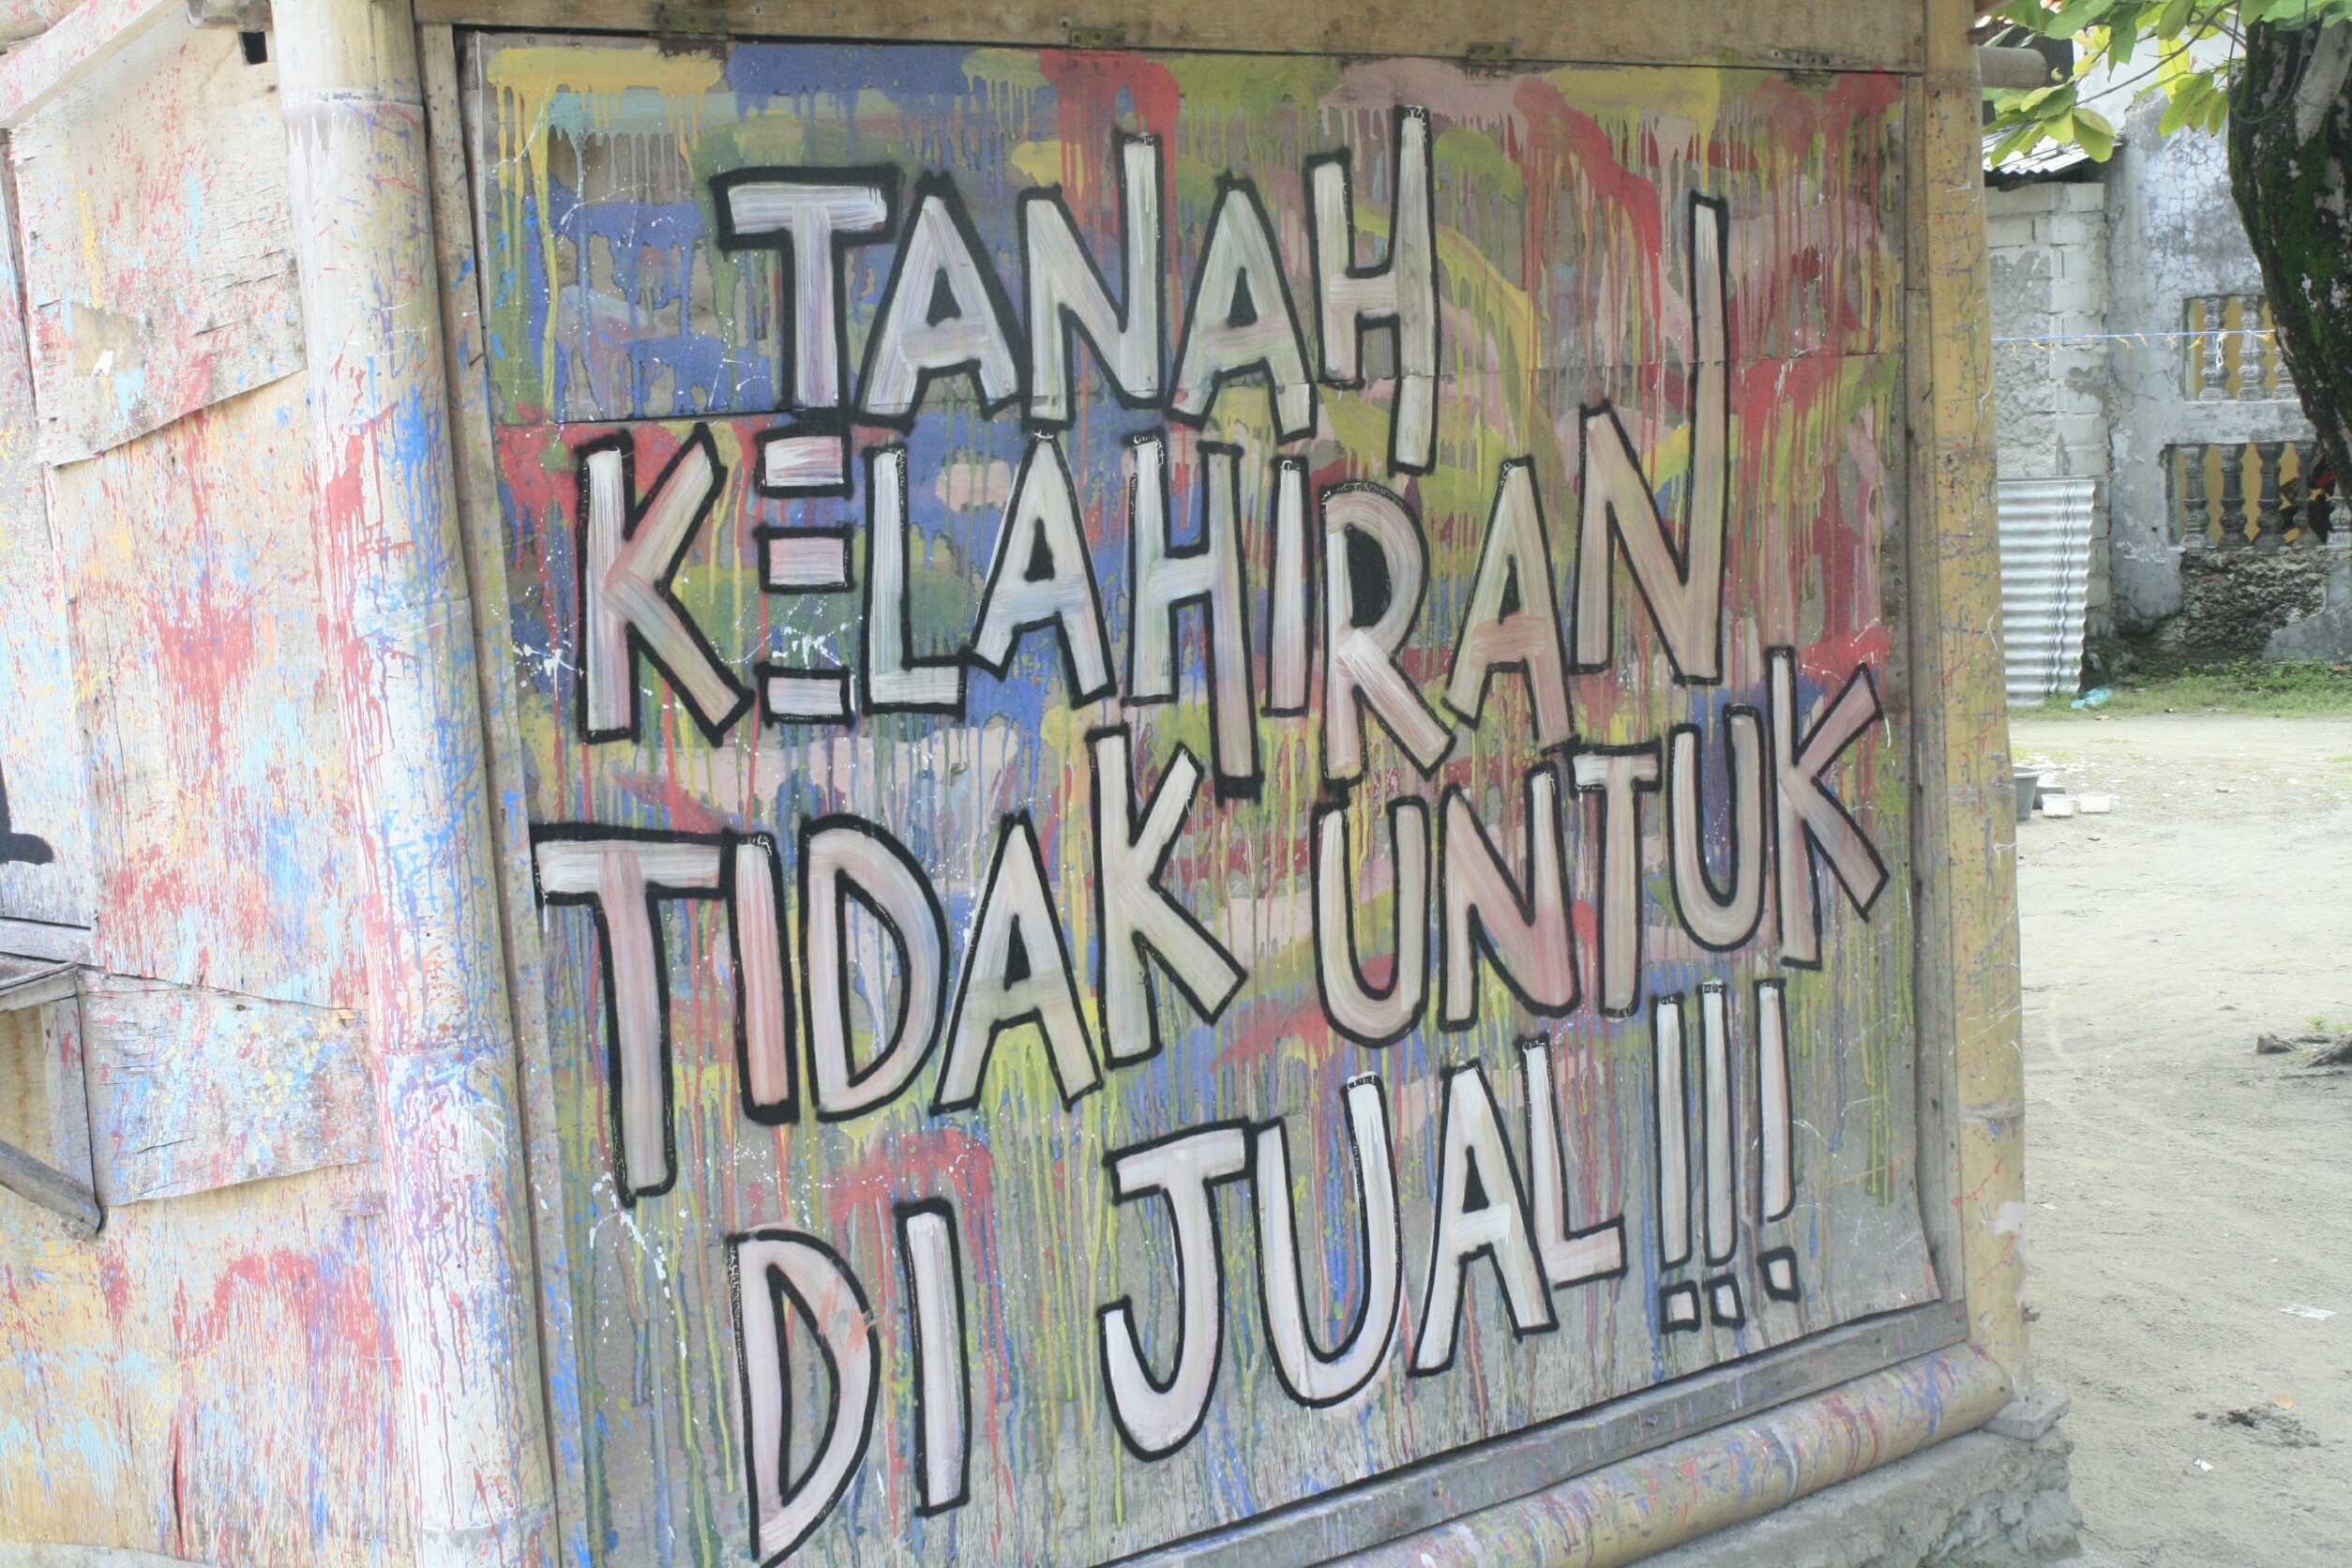 TANAH
KELAHIRAN
TIDAK UNTUK
DI JUAL!!!